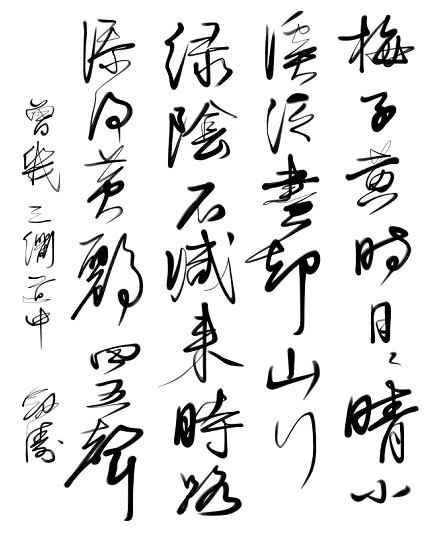 梅子黄時日々晴小
溪泛盡却山行
绿陰不減来時路
添得黄鸝四五聲
曾幾三衢道中